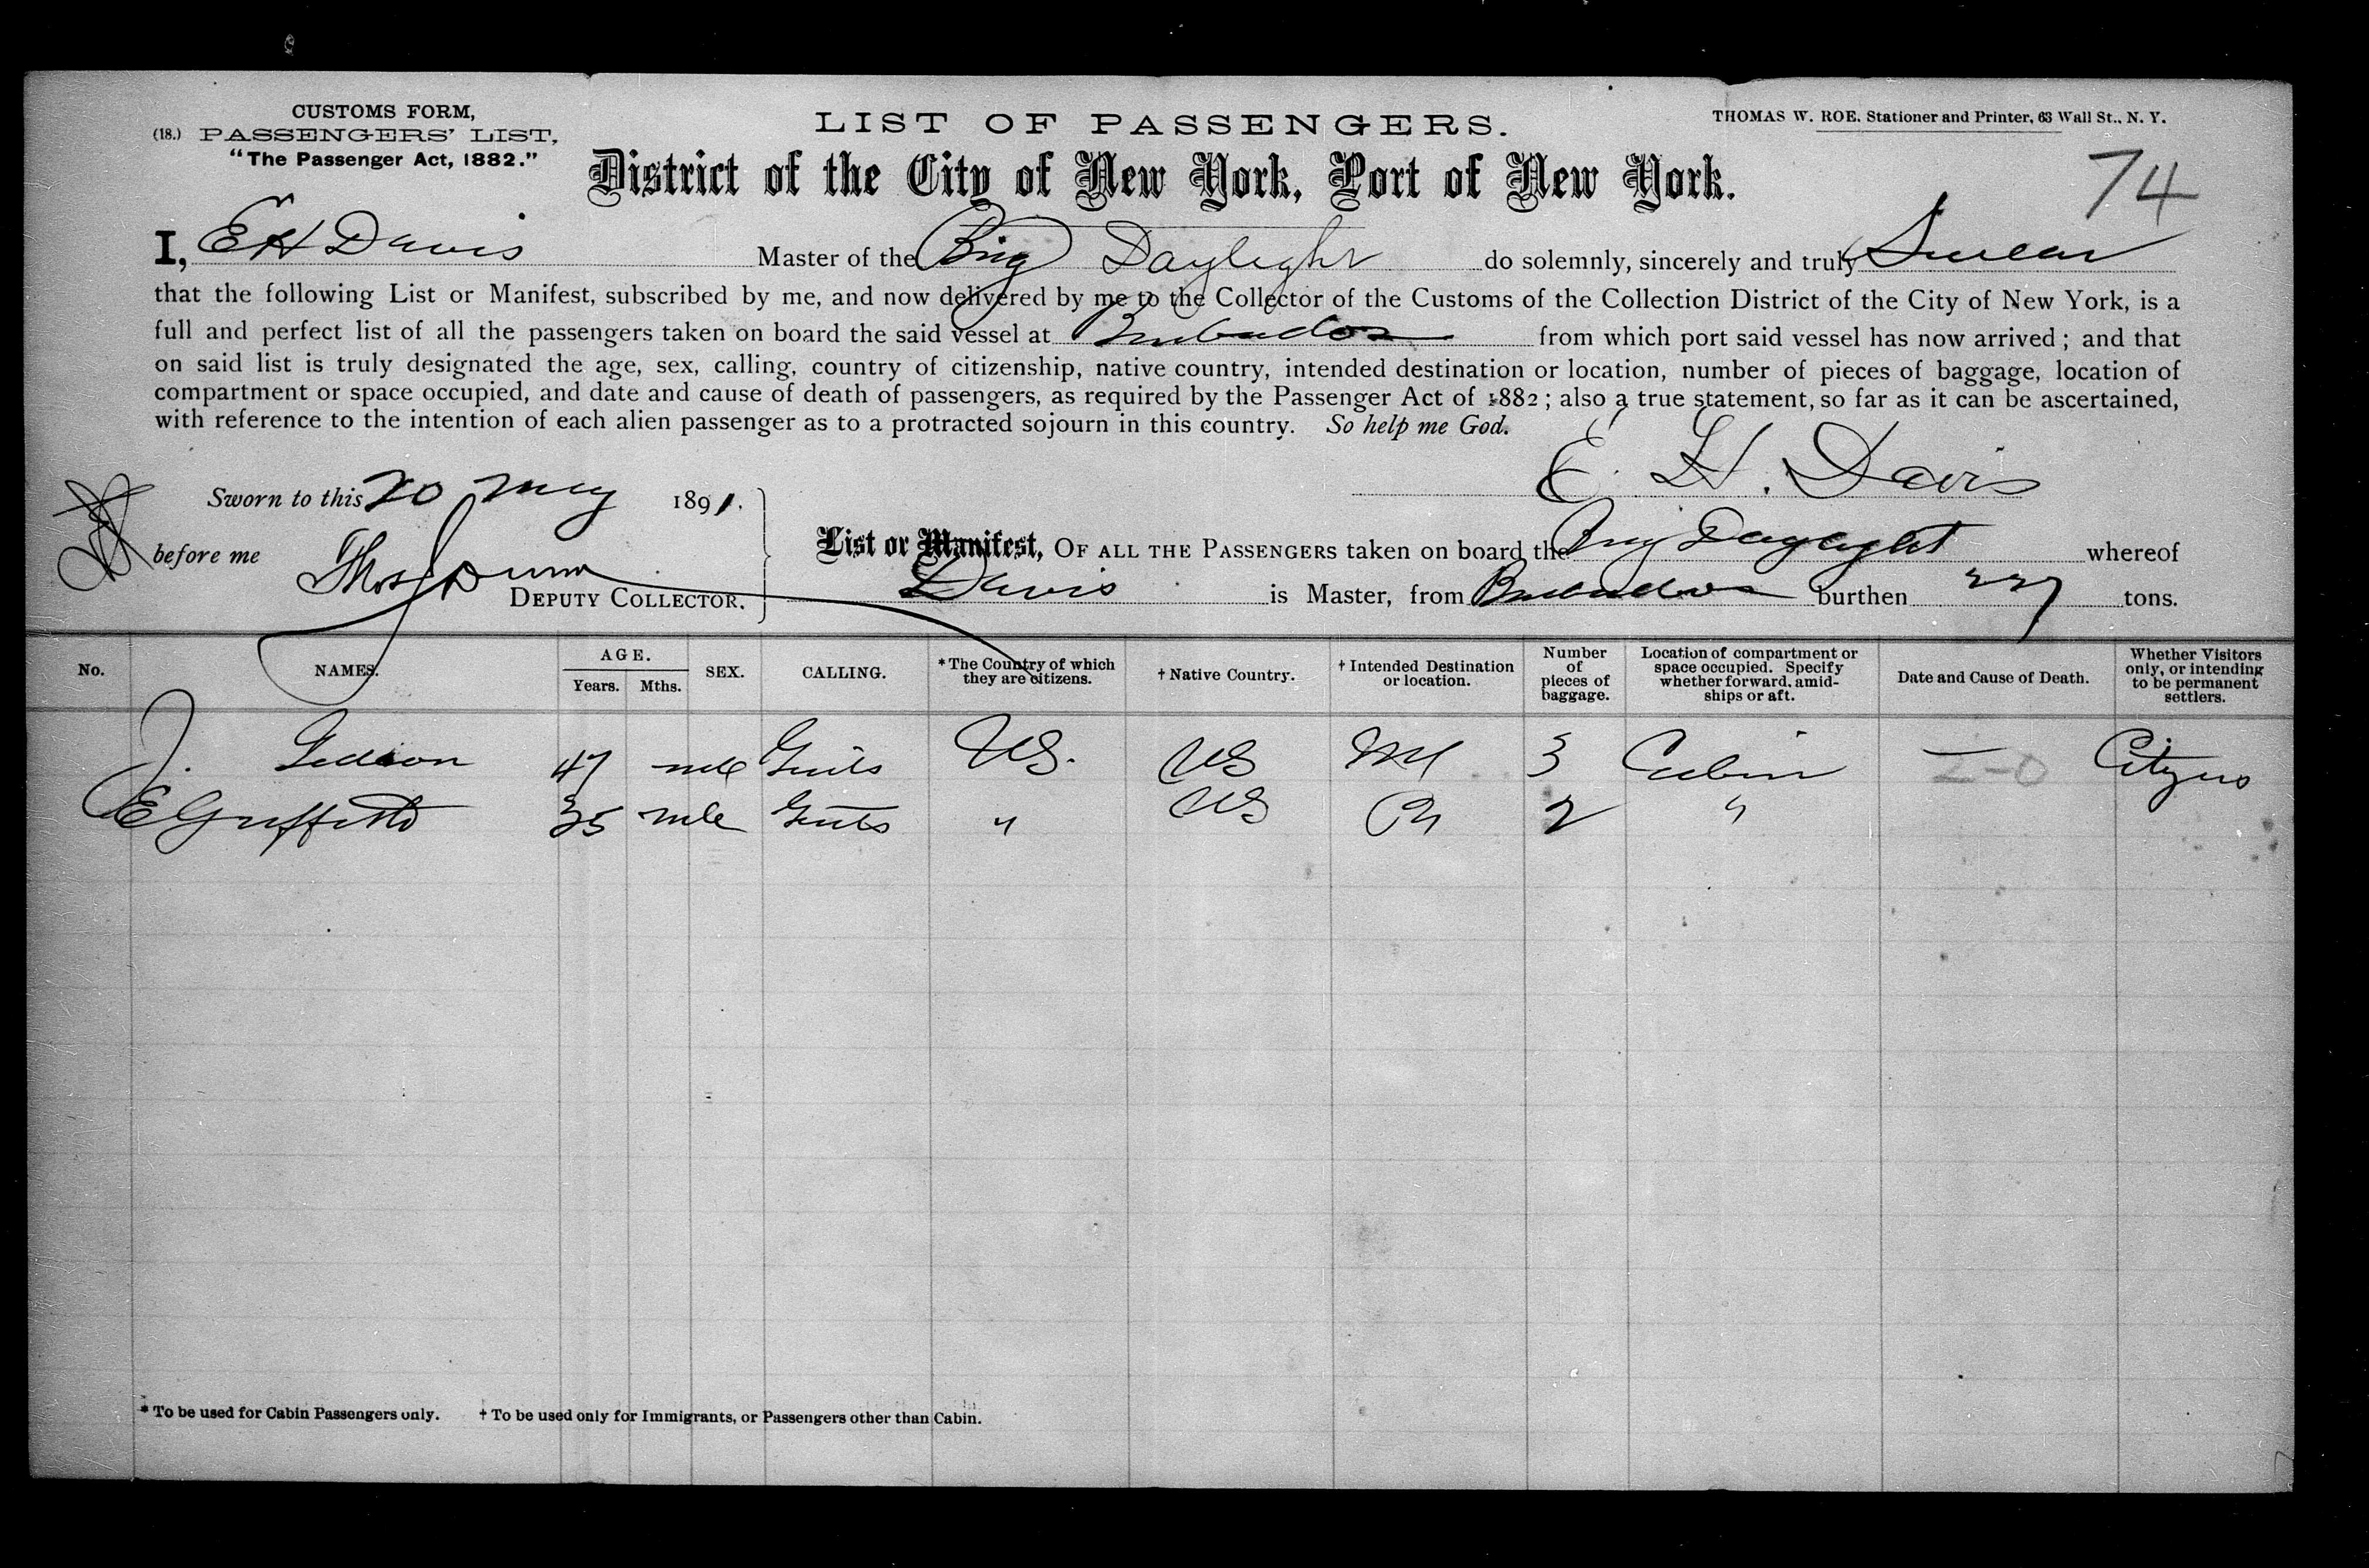 CUSTOMS FORM,
(18.) PASSENGERS' LIST,
"The Passenger Act, 1882."
LIST OF PASSENGERS.
THOMAS W. ROE. Stationer and Printer, 63 Wall St., N. Y.
District of the City of New York, Port of New York.
74
I, EH Davis Master of the Brig Daylight do solemnly, sincerely and truly Swear
that the following List or Manifest, subscribed by me, and now delivered by me to the Collector of the Customs of the Collection District of the City of New York, is a
full and perfect list of all the passengers taken on board the said vessel at Barbados from which port said vessel has now arrived; and that
on said list is truly designated the age, sex, calling, country of citizenship, native country, intended destination or location, number of pieces of baggage, location of
compartment or space occupied, and date and cause of death of passengers, as required by the Passenger Act of 1882; also a true statement, so far as it can be ascertained,
with reference to the intention of each alien passenger as to a protracted sojourn in this country. So help me God.
E. H. Davis
Sworn to this 20 May 1891.
before me
DEPUTY COLLECTOR.
List or Manifest, OF ALL THE PASSENGERS taken on board the Brig Daylight whereof
Davis is Master, from Barbados burthen 227 tons.
No. NAMES. AGE. Years. Mths. SEX. CALLING. *The Country of which they are citizens. † Native Country. † Intended Destination or location. Number of pieces of baggage. Location of compartment or space occupied. Specify whether forward, amidships or aft. Date and Cause of Death. Whether Visitors only, or intending to be permanent settlers.
J. 47 mle Gents US. US NY 3 Cabin — Citizens
E Griffith 35 mle Gents " US 2 "
* To be used for Cabin Passengers only. † To be used only for Immigrants, or Passengers other than Cabin.